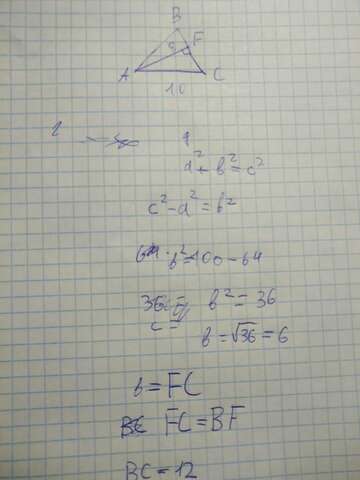 B
F
A
C
10
a² + b² = c²
c² - a² = b²
b² = 100 - 64
b² = 36
c =
b = √36 = 6
b = FC
FC = BF
BC = 12